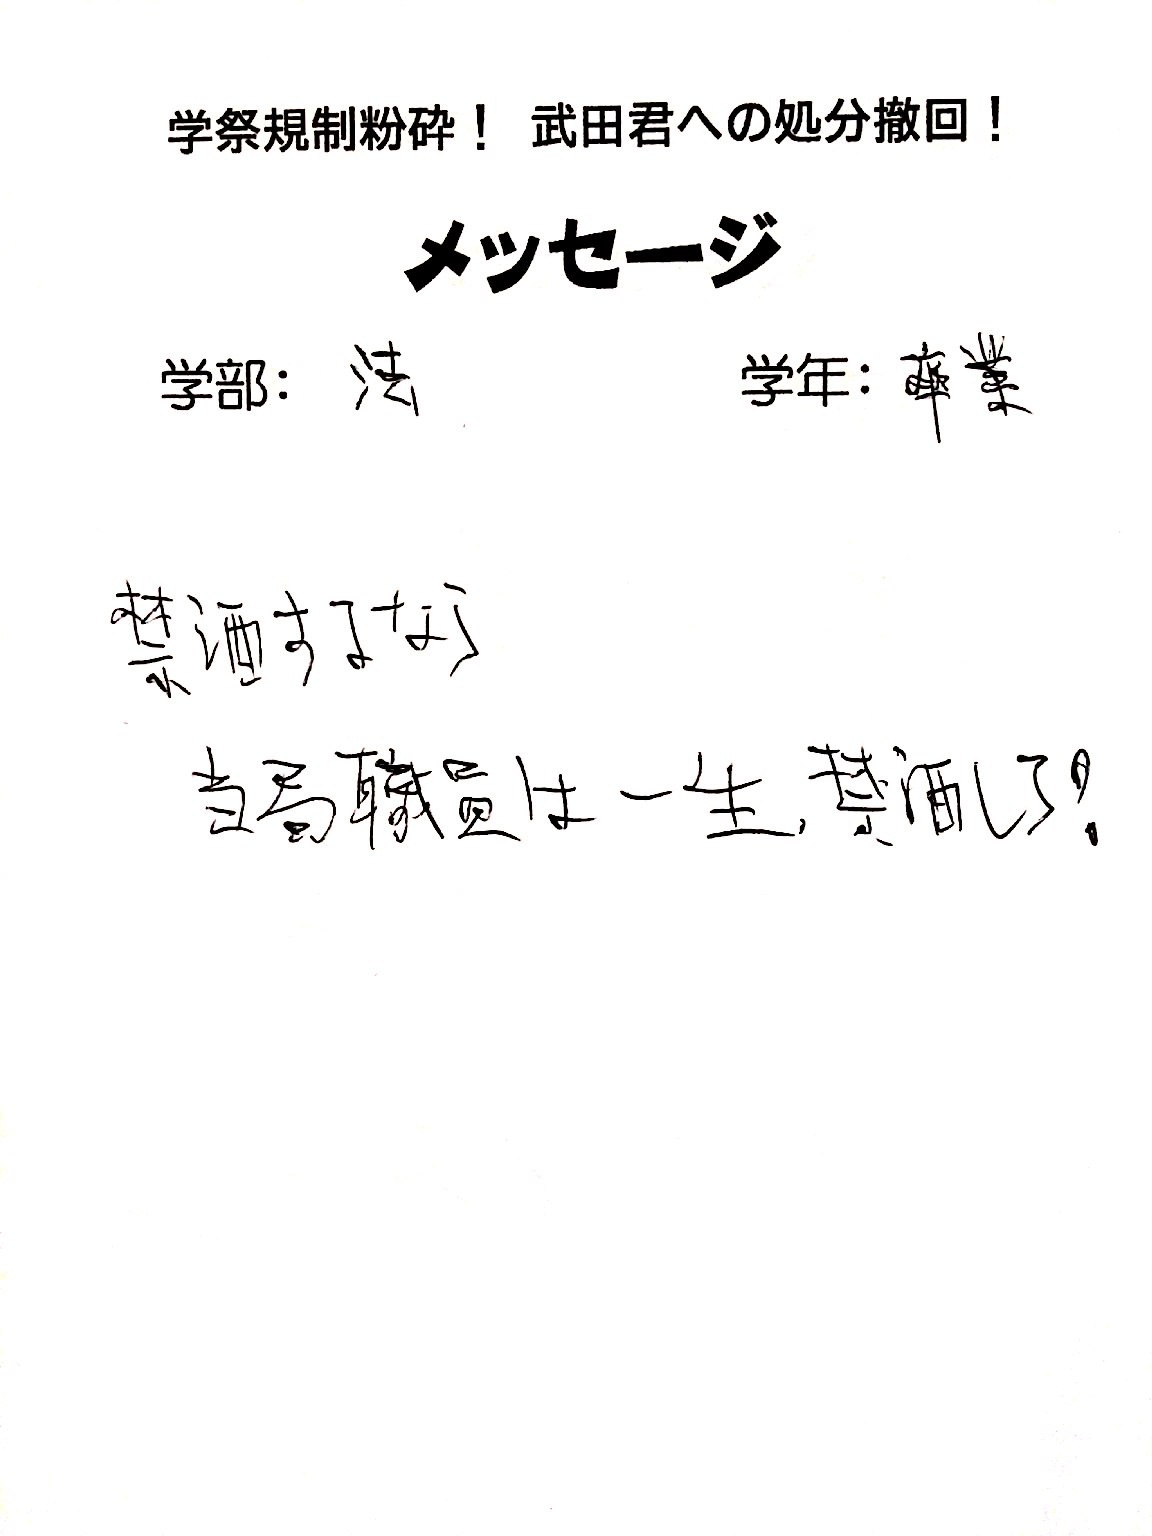 学祭規制粉砕！ 武田君への処分撤回！
メッセージ
学部： 法 学年： 卒業
禁酒するなら
当局職員は一生、禁酒しろ！